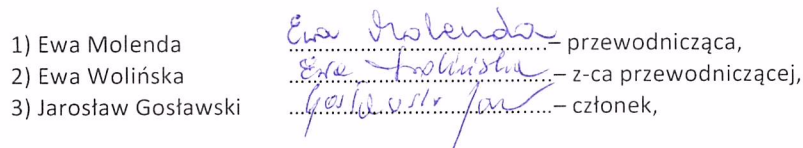 1) Ewa Molenda Ewa Molenda – przewodnicząca,
2) Ewa Wolińska Ewa Wolińska – z-ca przewodniczącej,
3) Jarosław Gosławski Gosławski Jar – członek,